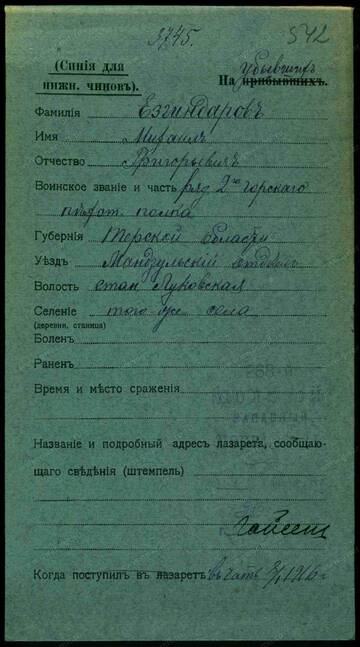 3745. 542
(Синія для
нижн. чиновъ).
На прибывшихъ. убывшихъ
Фамилія Езгиндаровъ
Имя Михаилъ
Отчество Григорьевичъ
Воинское званіе и часть ряд 2го горскаго
пѣхот. полка
Губернія Терской области
Уѣздъ отдѣлъ
Волость стан Луковская
Селеніе того же села
(деревни, станица)
Боленъ
Раненъ
Время и мѣсто сраженія
Названіе и подробный адресъ лазарета, сообщаю-
щаго свѣдѣнія (штемпель)
Когда поступилъ въ лазаретъ въ часть 1916 г